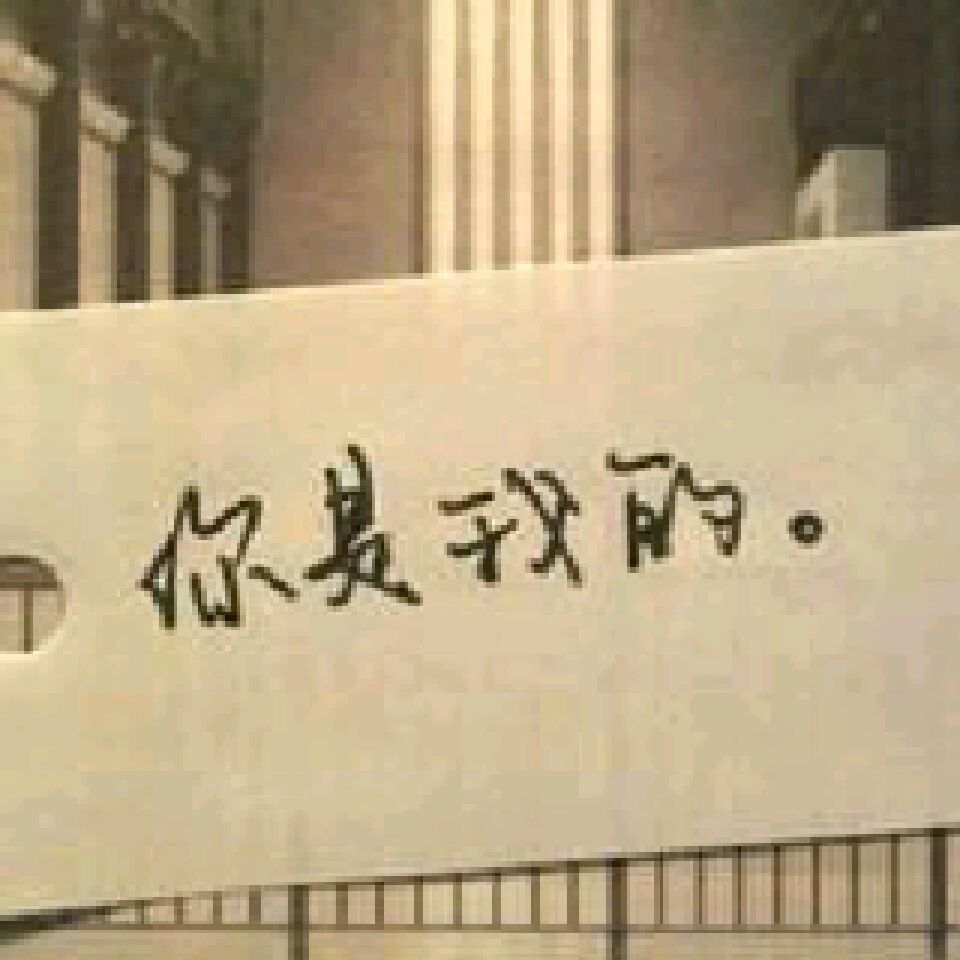 你是我的。